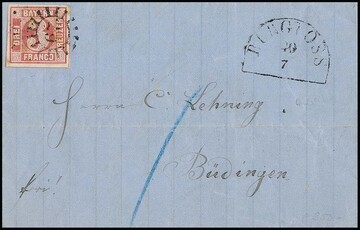 BAYERN
FRANCO
BURGJOSS
20
7
Herrn C. Lehning
Büdingen
frei!